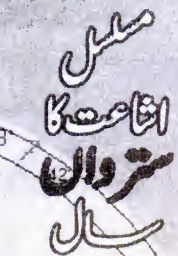 مسلسل
اشاعت کا
سترواں
سال